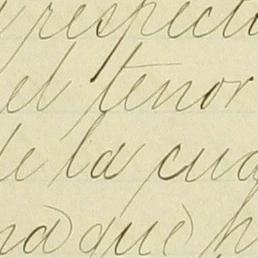 respecti
el tenor
de la cua
na) que h